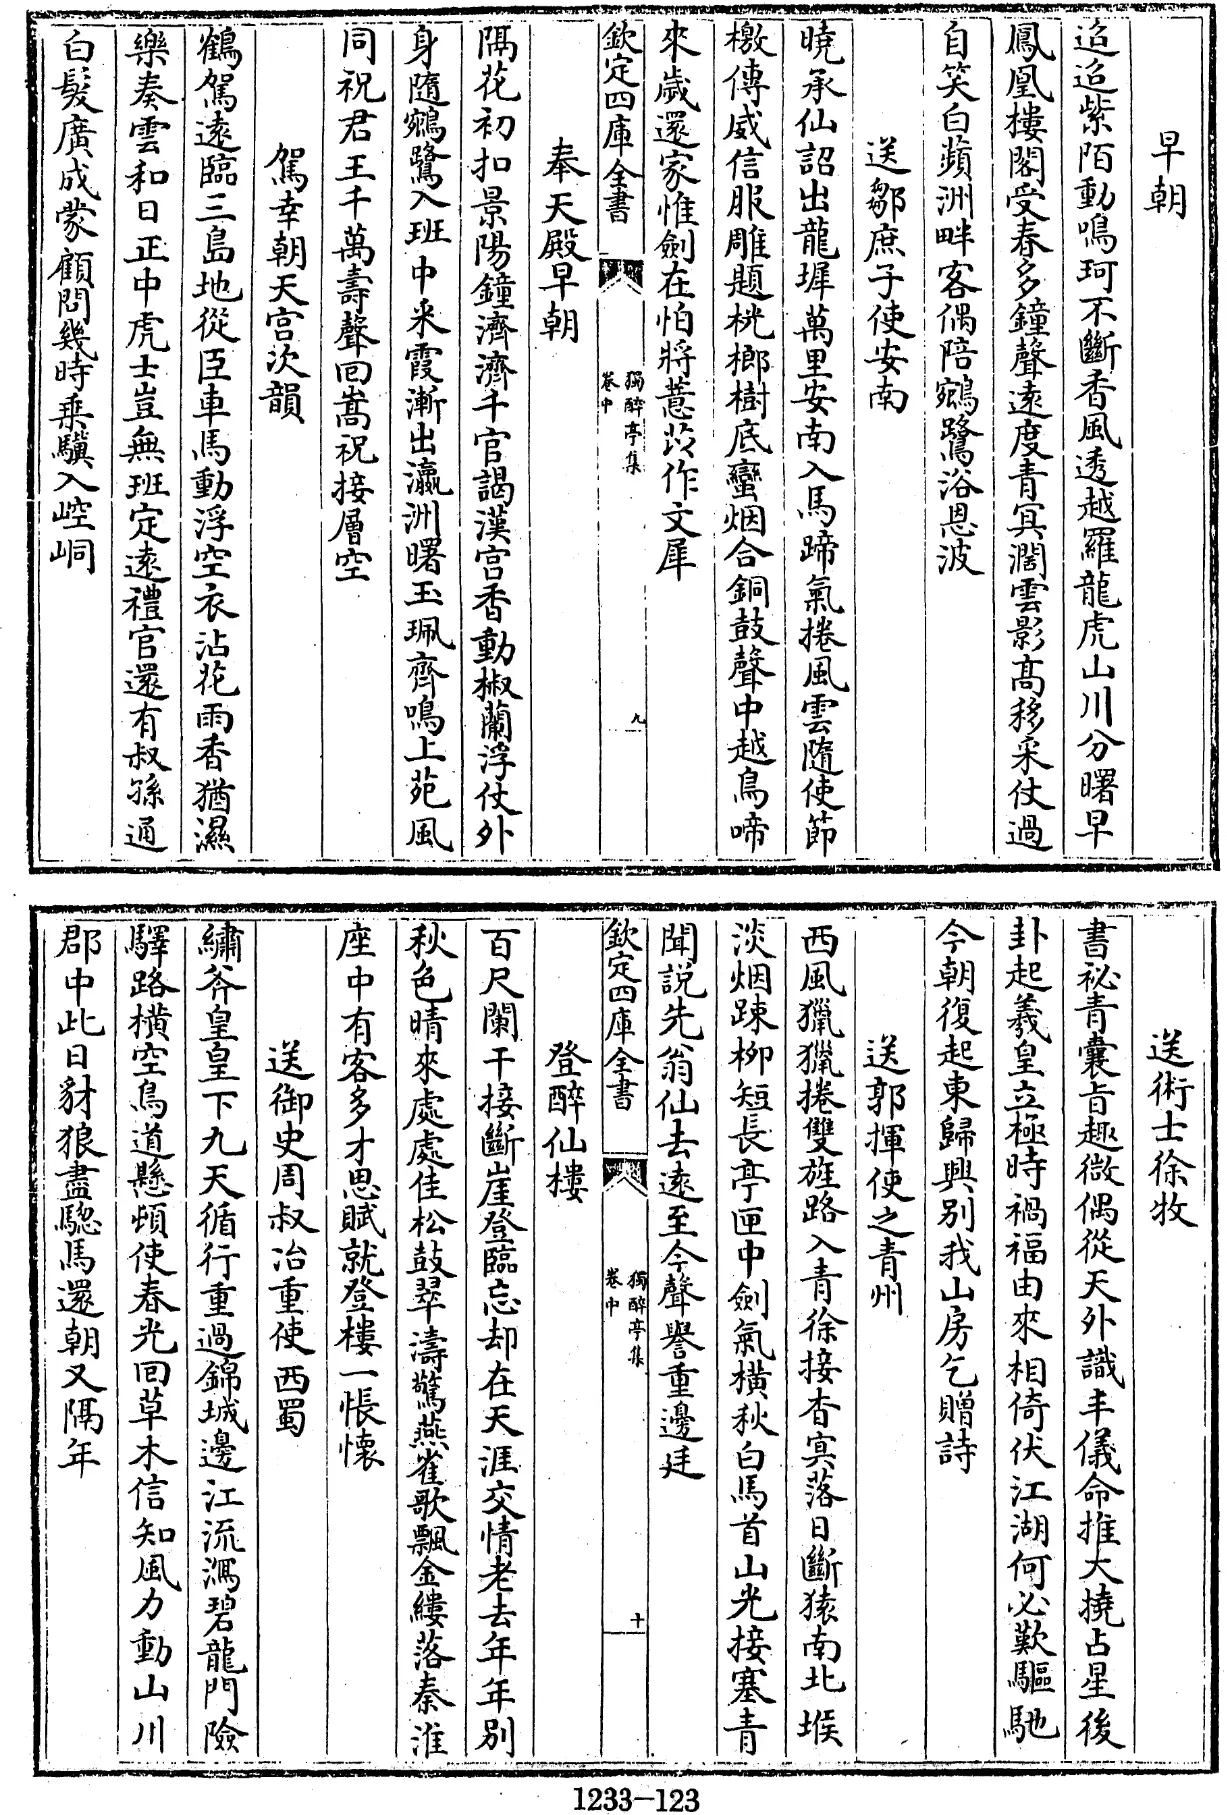 早朝
迢迢紫陌動鳴珂不斷香風透越羅龍虎山川分曙早
鳳凰樓閣受春多鐘聲遠度青冥濶雲影髙移采仗過
自笑白蘋洲畔客偶陪鵷鷺浴恩波
送鄒庶子使安南
曉承仙詔出龍墀萬里安南入馬蹄氣捲風雲隨使節
檄傳威信服雕題桄榔樹底蠻烟合銅鼓聲中越鳥啼
來歲還家惟劍在怕將薏苡作文犀
欽定四庫全書
獨醉亭集
卷中
九
奉天殿早朝
隔花初扣景陽鐘濟濟千官謁漢宫香動椒蘭浮仗外
身隨鵷鷺入班中采霞漸出瀛洲曙玉珮齊鳴上苑風
同祝君王千萬壽聲回嵩祝接層空
駕幸朝天宫次韻
鶴駕遠臨三島地從臣車馬動浮空衣沾花雨香猶濕
樂奏雲和日正中虎士豈無班定遠禮官還有叔孫通
白髮廣成蒙顧問幾時乘驥入崆峒
送術士徐牧
書祕青囊旨趣微偶從天外識丰儀命推大撓占星後
卦起羲皇立極時禍福由來相倚伏江湖何必歎驅馳
今朝復起東歸興别我山房乞贈詩
送郭揮使之青州
西風獵獵捲雙旌路入青徐接杳㝠落日斷猿南北堠
淡烟踈柳短長亭匣中劍氣橫秋白馬首山光接塞青
聞說先翁仙去遠至今聲譽重邊廷
欽定四庫全書
獨醉亭集
卷中
十
登醉仙樓
百尺闌干接斷崖登臨忘却在天涯交情老去年年别
秋色晴來處處佳松鼓翠濤驚燕雀歌飄金縷落秦淮
座中有客多才思賦就登樓一悵懷
送御史周叔冶重使西蜀
繡斧皇皇下九天循行重過錦城邊江流瀉碧龍門險
驛路橫空鳥道懸頓使春光回草木信知風力動山川
郡中此日豺狼盡驄馬還朝又隔年
1233-123